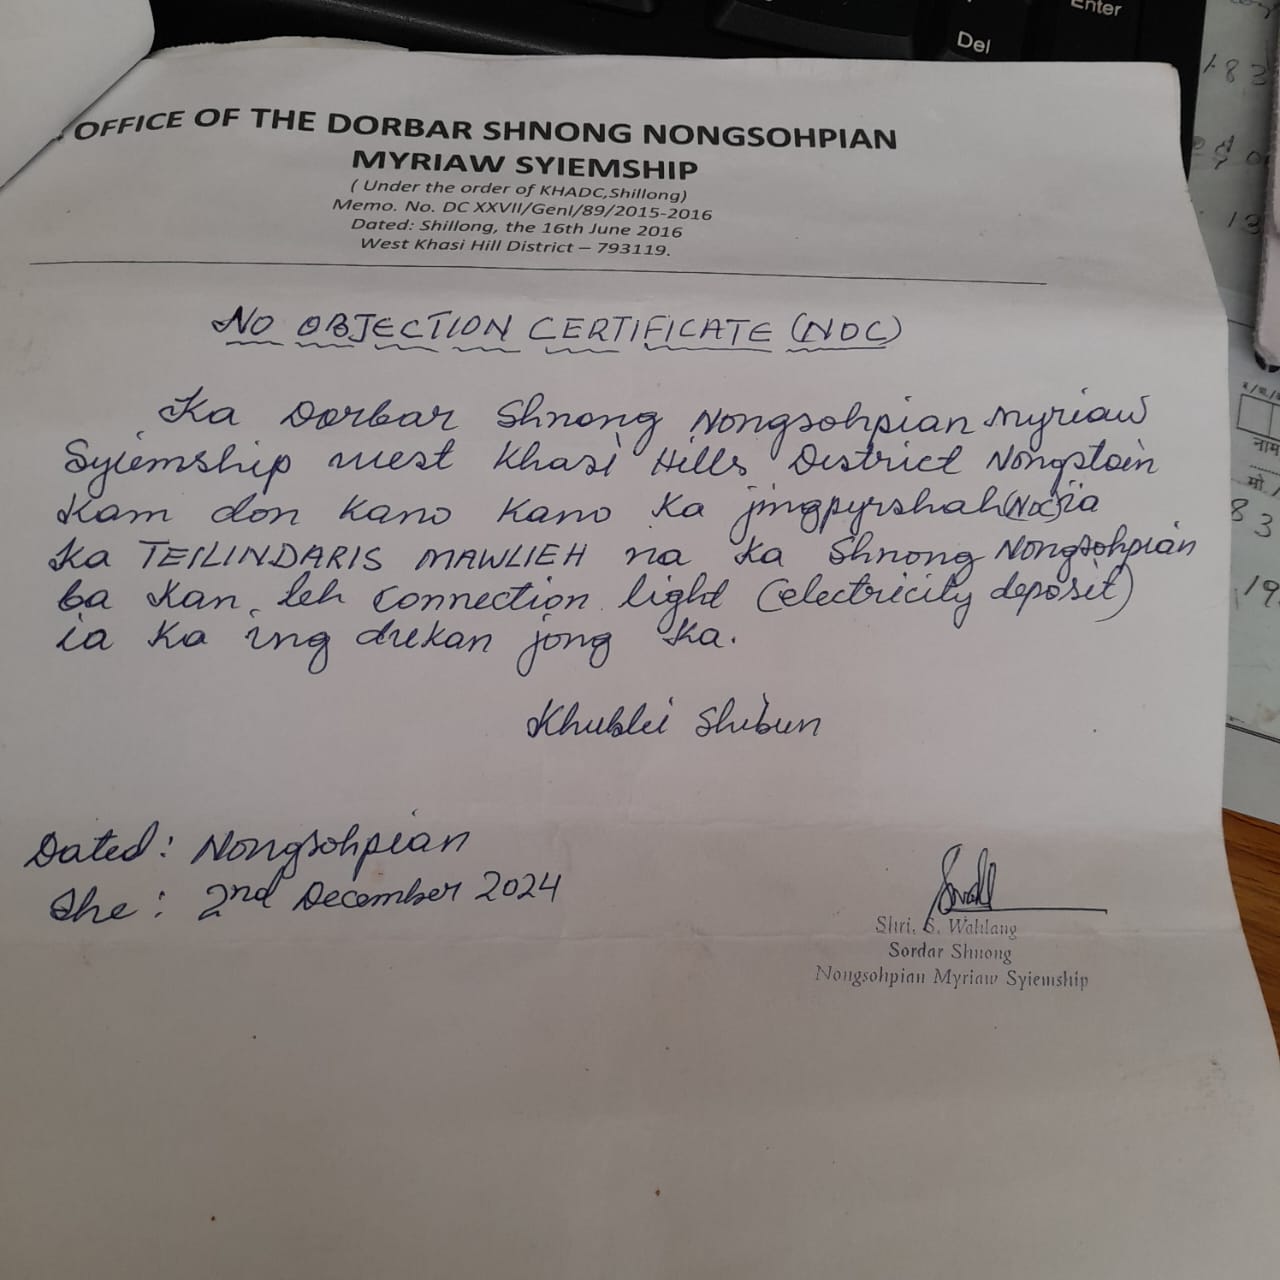 Enter
Del
OFFICE OF THE DORBAR SHNONG NONGSOHPIAN
MYRIAW SYIEMSHIP
( Under the order of KHADC,Shillong)
Memo. No. DC XXVII/Genl/89/2015-2016
Dated: Shillong, the 16th June 2016
West Khasi Hill District – 793119.
NO OBJECTION CERTIFICATE (NOC)
Ka Dorbar Shnong Nongsohpian Myriaw
Syiemship west Khasi Hills District Nongstoin
Kam don kano kano ka jingpyrshah (NOC) ia
ka TEILINDARIS MAWLIEH na ka Shnong Nongsohpian
ba kan leh connection light (electricity deposit)
ia ka ing dukan jong ka.
Khublei Shibun
Dated: Nongsohpian
The : 2nd December 2024
Shri. S. Wahlang
Sordar Shnong
Nongsohpian Myriaw Syiemship
183
13
नाम
मो
83
19